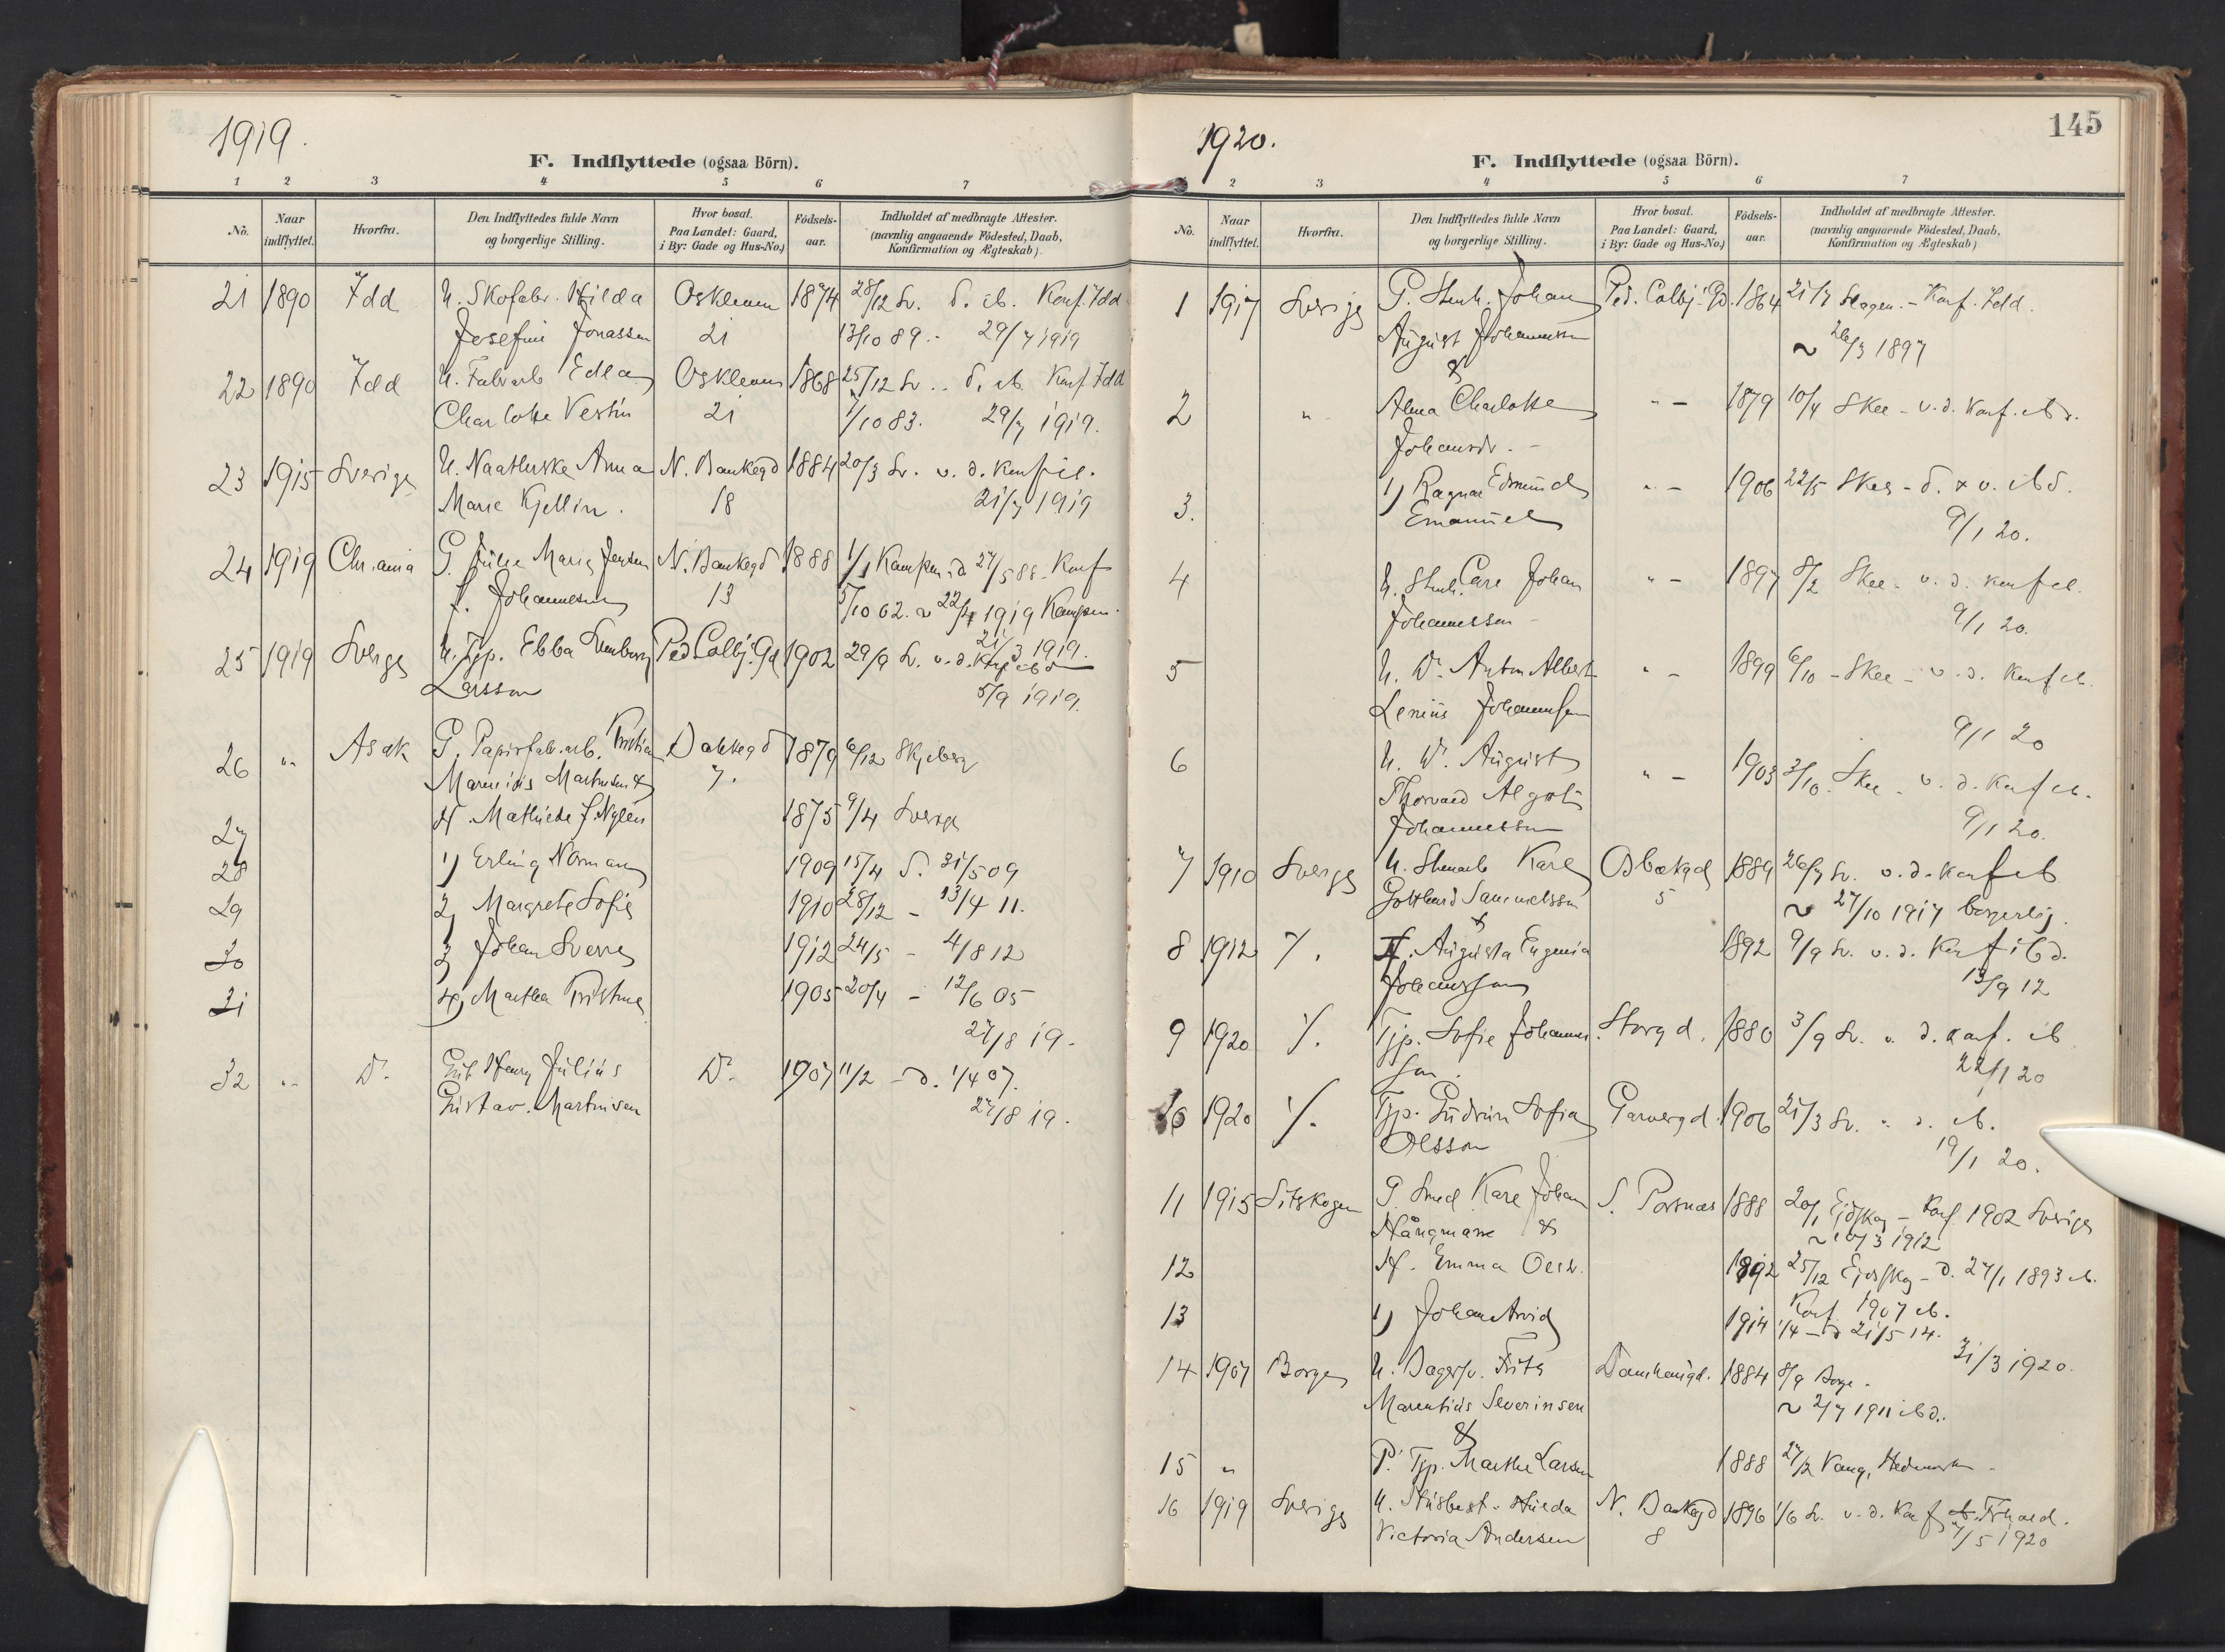 1919.
F. Indflyttede (ogsaa Börn).
1 2 3 4 5 6 7
No. Naar indflyttet. Hvorfra. Den Indflyttedes fulde Navn og borgerlige Stilling. Hvor bosat. Paa Landet: Gaard, i By: Gade og Hus-No.) Födsels-aar. Indholdet af medbragte Attester. (navnlig angaaende Födested, Daab, Konfirmation og Ægteskab).
21 1890 Idd U. Skofabr. Hilda Oskleven 1874 28/12 Sv. d. ib. Konf. Idd
Josefine Jonassen 21 13/10 89. - 29/7 1919
22 1890 Idd U. Fabrarb Edla Oskleven 1868 25/12 Sv. d. ib Konf Idd
Charlotte Vestin 21 7/10 83. 29/7 1919.
23 1915 Sverige U. Anna N. Bankegd 1884 20/3 Sv. v. d. Konf ib.
Marie Kjellin. 18 21/7 1919
24 1919 Chr.ania G. Julie Marie Jensen N. Bankegd 1888 1/1 Kampen d 27/5 88. Konf
f. Johannesen 13 5/10 02. ~ 22/ 1919 Kampen.
21/3 1919.
25 1919 Sverge U. Tjp. Ebba Ped. Colbj. Gd 1902 29/9 Sv. v. d. Konf ibd
Larsson 5/9 1919.
26 " Asak G. Papirfabr.arb. Kristian Bakkegd 1879 6/12 Skjeberg
Marinius Martinsen & 7.
27 H. Mathilde f. Nylén 1875 9/4 Sverge
28 1) Erling Norman 1909 15/4 d. 31/5 09
29 2) Margrete Sofie 1910 28/12 - 13/4 11.
30 3) Johan Sverre 1912 24/5 - 4/8 12
31 4) Martha Kristine 1905 20/4 - 12/6 05
27/8 19.
32 " Do. Henry Julius Do. 1907 11/2 - d. 1/4 07.
Gustav. Martinsen 27/8 19.
1920.
145
F. Indflyttede (ogsaa Börn).
2 3 4 5 6 7
No. Naar indflyttet. Hvorfra. Den Indflyttedes fulde Navn og borgerlige Stilling. Hvor bosat. Paa Landet: Gaard, i By: Gade og Hus-No.) Födsels-aar. Indholdet af medbragte Attester. (navnlig angaaende Födested, Daab, Konfirmation og Ægteskab)
1 1917 Sverige G. Stenh. Johan Ped. Colbj. Gd. 1864 21/7 Skagen. - Konf. Idd.
August Johannessen ~ 26/3 1897
&
2 " Alma Charlotte " - 1879 10/4 Skee - v. d. Konf. ibd.
Johansdr. -
3. 1) Ragnar Edmund " - 1906 22/5 Skee - d. & v. ibd.
Emanuel 9/1 20.
4 U. Stenh. Carl Johan " - 1897 8/2 Skee - v. d. Konf ib.
Johannessen - 9/1 20.
5 U. Do. Anton Albert " - 1899 6/10 - Skee - v. d. Konf ib.
Lenius Johannessen 9/1 20
6 U. Do. August " - 1903 3/10. Skee - v. d. Konf ib.
Thorvald Algot
Johannessen 9/1 20.
7 1910 Sverge U. Stenarb Karl Osbækgd 1889 26/7 Sv. v. d. Konf ib
Gotthard Samuelsson 5 ~ 27/10 1917 borgerlig.
&
8 1912 /. H. Augusta Eugenia 1892 9/9 Sv. v. d. Konf ibd.
Johansson 13/9 12
9 1920 /. Tjp. Sofie Johannes- Storgd. 1880 3/9 Sv. v. d. Konf. ib
son. 22/1 20
10 1920 /. Tjp. Gudrun Sofia Garvergd. 1906 21/3 Sv. v. d. ib.
Olsson 19/1 20.
11 1915 Sitskogen G. Smed Karl Johan S. Porsnæs 1888 20/1 Eidskog - Konf. 1902 Sverige
Hångmann & ~ 10/3 1912
12 H. Emma 1892 25/12 Ejdskog - d. 27/1 1893 ib.
Konf 1907 ib.
13 1) Johan Arvid 1914 1/4 - d 21/5 14.
31/3 1920.
14 1907 Borge U. Fritz Damhaugd. 1884 8/9 Borge -
Marentius Severinsen ~ 2/7 1911 ibd.
&
15 " P. Tjp. Marthe Larsen 1888 27/2 Vang, Hedmarken -
16 1919 Sverige U. Husbest. Hulda N. Bankegd 1896 1/6 Sv. v. d. Konf ib. Frhald.
Victoria Andersen 8 7/5 1920